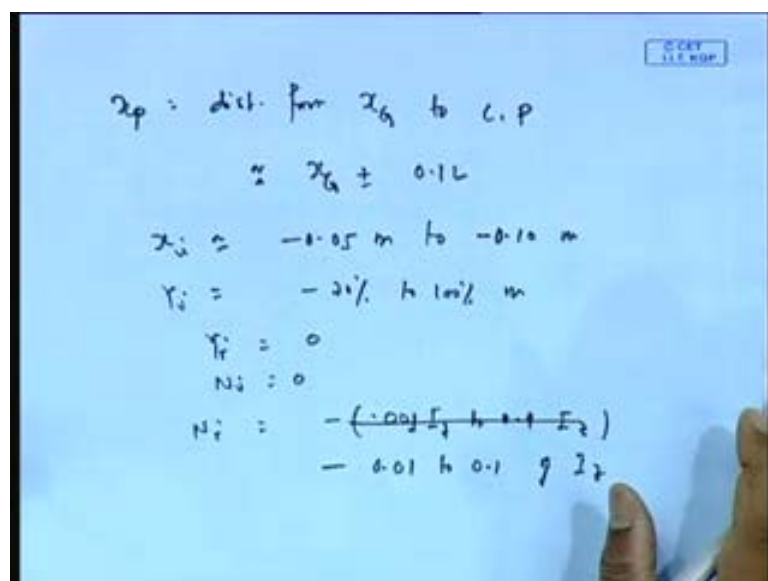 © CET
I.I.T. KGP
x_P : dist. from x_G to C.P
≈ x_G ± 0.1L
≈ -0.05 m to -0.10 m
= - 20% to 100% m
= 0
: 0
: - (.001 I_z to 0.1 I_z)
- 0.01 to 0.1 of I_z